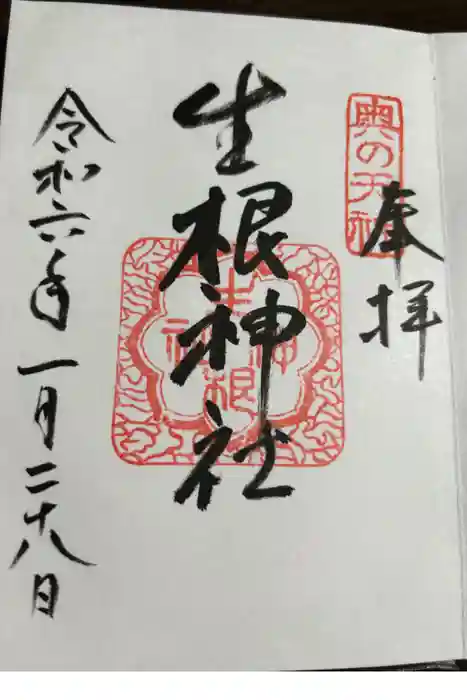 奥の天神
奉拝
生根神社
生根神社
令和六年一月二十八日